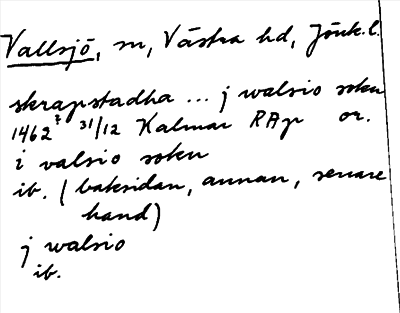 Vallsjö, sn, Västra hd, Jönk. l.
skrapstadha ... j walsio sokn
1462 31/12 Kalmar RAp or.
i valsio sokn
ib. (baksidan, annan, senare
hand)
j walsio
ib.